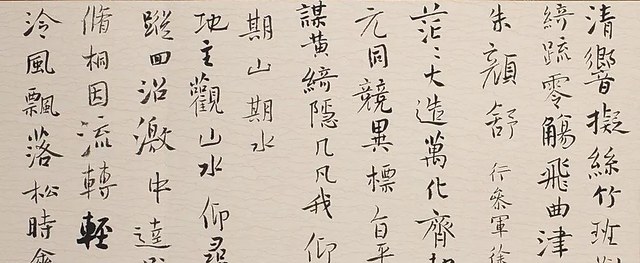 清響擬絲竹班
綺疏零觴飛曲津
朱顏舒 行參軍徐
茫〻大造萬化齊
元同競異標旨平
謀黃綺隱几凡我仰
期山期水
地主觀山水仰尋
蹤回沼激中逵
脩桐因流轉輕
冷風飄落松時禽